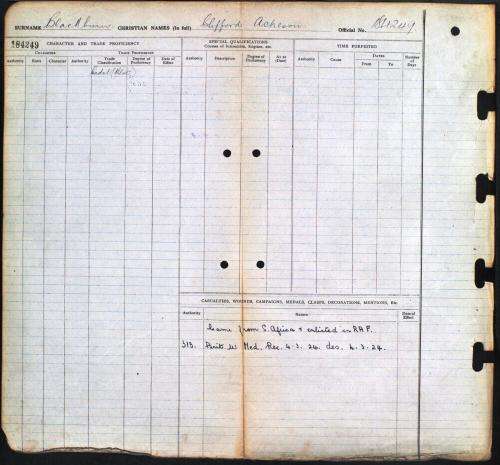 SURNAME Blackburn CHRISTIAN NAMES (in full) Clifford Acheson Official No.
184249
CHARACTER AND TRADE PROFICIENCY
SPECIAL QUALIFICATIONS
Courses of Instruction, Engines, etc.
TIME FORFEITED
CHARACTER
TRADE PROFICIENCY
Authority Rank Character Authority Trade Classification Degree of Proficiency Date of Effect
Authority Description Degree of Proficiency As at (Date)
Authority Cause DATES From To Number of Days
Cadet (Pilot)
CASUALTIES, WOUNDS, CAMPAIGNS, MEDALS, CLASPS, DECORATIONS, MENTIONS, Etc.
Authority Nature Date of Effect
Came from S. Africa & enlisted in RAF.
313. Brit. W. Med. Rec. 4.3.24. des. 4.3.24.